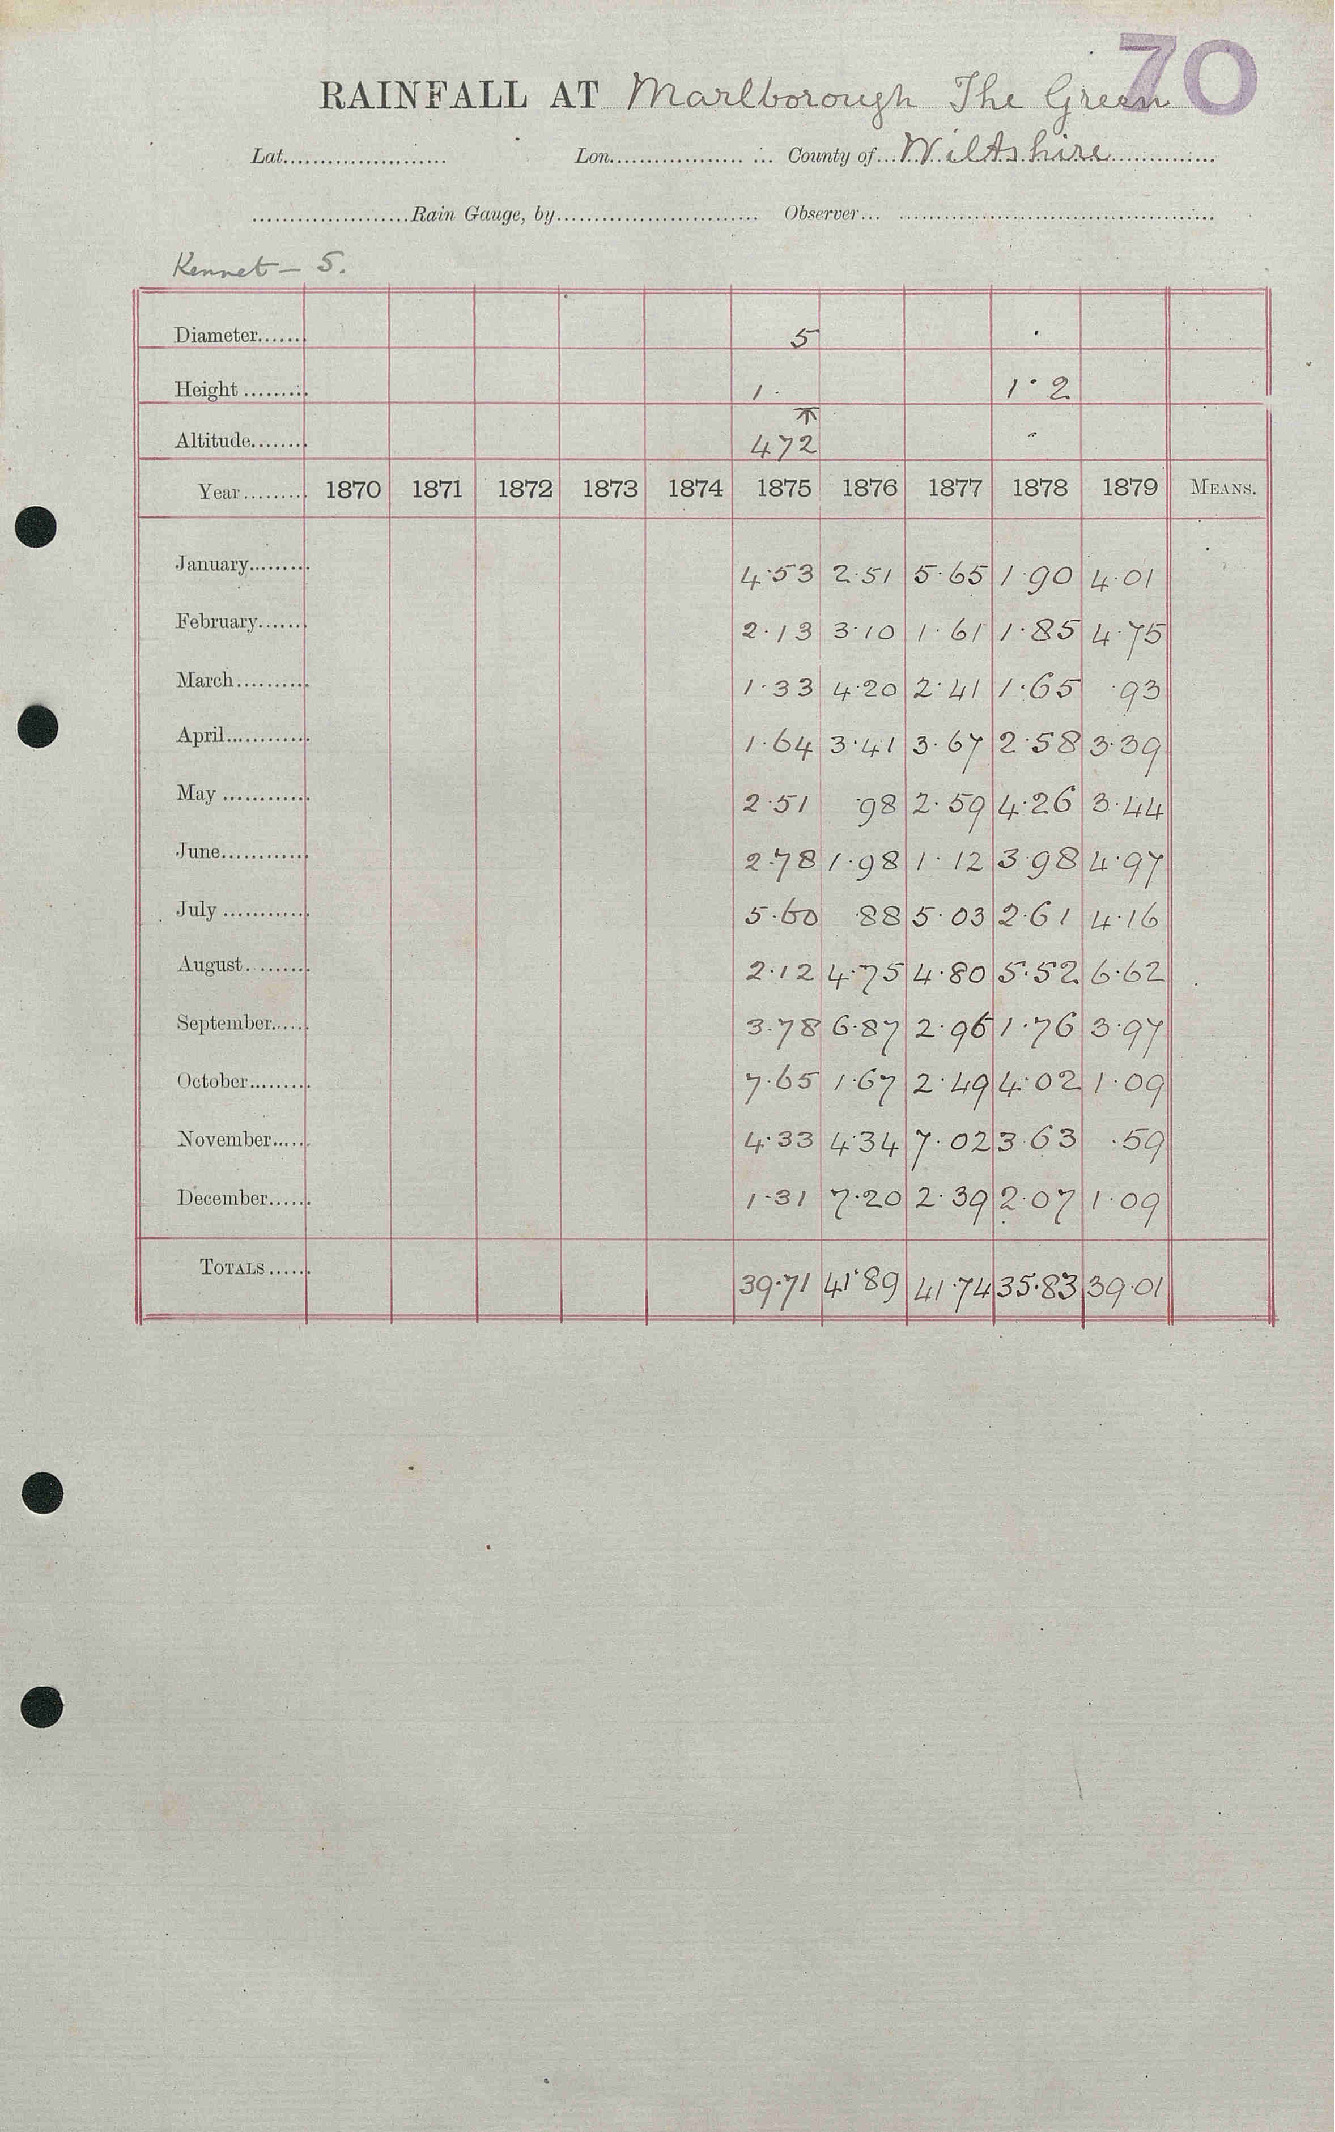 70
RAINFALL AT Marlborough The Green
Lat...................... Lon...................... County of...Wiltshire...............
.....................Rain Gauge, by........................... Observer... ..........................................
Kennet — 5.
Diameter....... 5
Height ......... 1· 1·2
Altitude........ 472
Year......... 1870 1871 1872 1873 1874 1875 1876 1877 1878 1879 MEANS.
January......... 4·53 2·51 5·65 1·90 4·01
February....... 2·13 3·10 1·61 1·85 4·75
March.......... 1·33 4·20 2·41 1·65 ·93
April............ 1·64 3·41 3·67 2·58 3·39
May ............ 2·51 ·98 2·59 4·26 3·44
June............ 2·78 1·98 1·12 3·98 4·97
July ............ 5·60 ·88 5·03 2·61 4·16
August......... 2·12 4·75 4·80 5·52 6·62
September...... 3·78 6·87 2·96 1·76 3·97
October......... 7·65 1·67 2·49 4·02 1·09
November...... 4·33 4·34 7·02 3·63 ·59
December...... 1·31 7·20 2·39 2·07 1·09
TOTALS...... 39·71 41·89 41·74 35·83 39·01